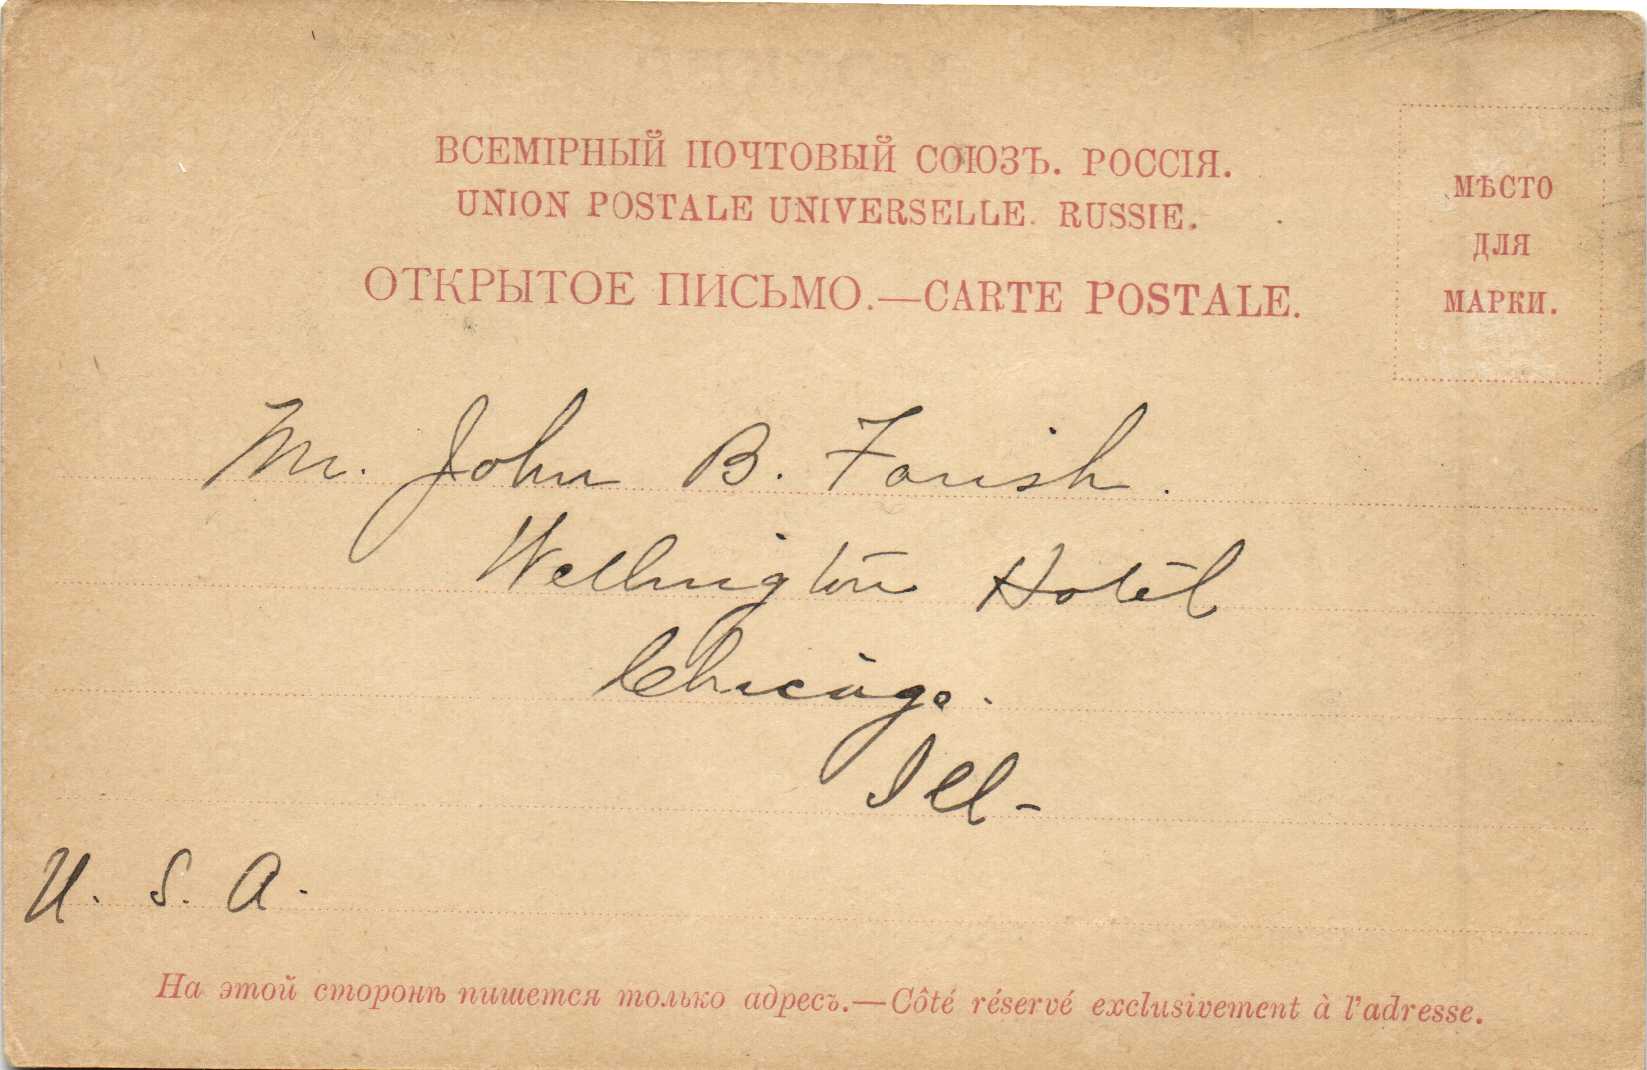 ВСЕМІРНЫЙ ПОЧТОВЫЙ СОЮЗЪ. РОССІЯ.
UNION POSTALE UNIVERSELLE. RUSSIE.
ОТКРЫТОЕ ПИСЬМО.—CARTE POSTALE.
МѢСТО
ДЛЯ
МАРКИ.
Mr. John B. Farish.
Wellington Hotel
Chicago.
Ill-
U. S. A.
На этой сторонѣ пишется только адресъ.—Côté réservé exclusivement à l'adresse.